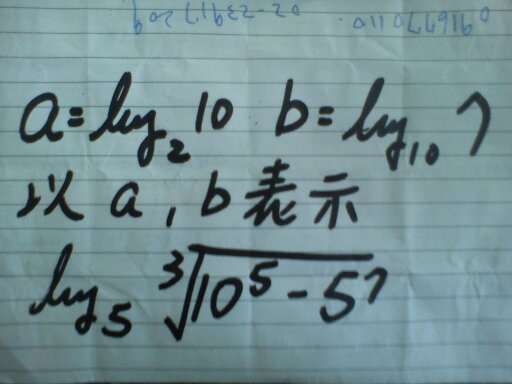 a = log₂ 10 b = log₁₀ 7
以 a , b 表示
log₅ ∛(10⁵ - 5⁷)